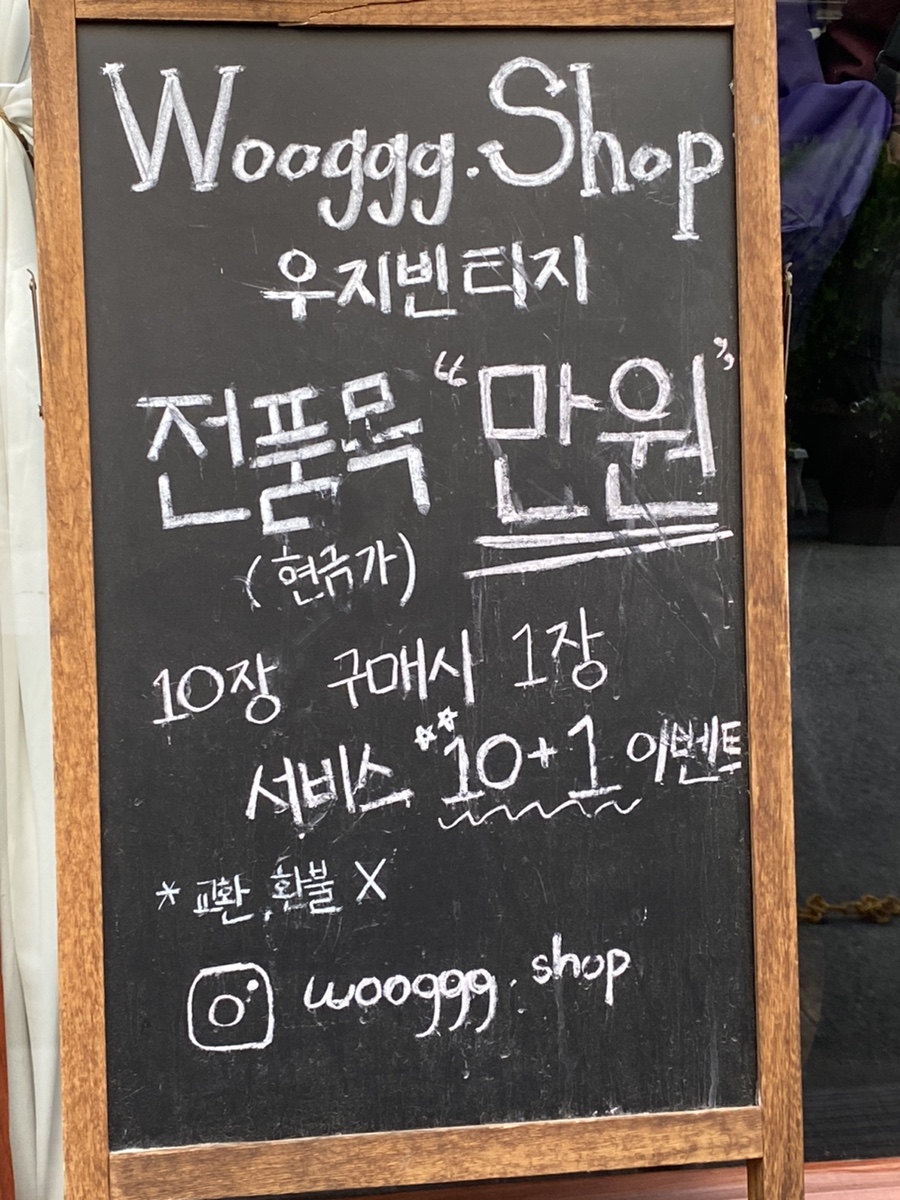 Wooggg.Shop
우지빈티지
전품목 “만원”
(현금가)
10장 구매시 1장
서비스 10+1 이벤트
* 교환, 환불 X
wooggg.shop